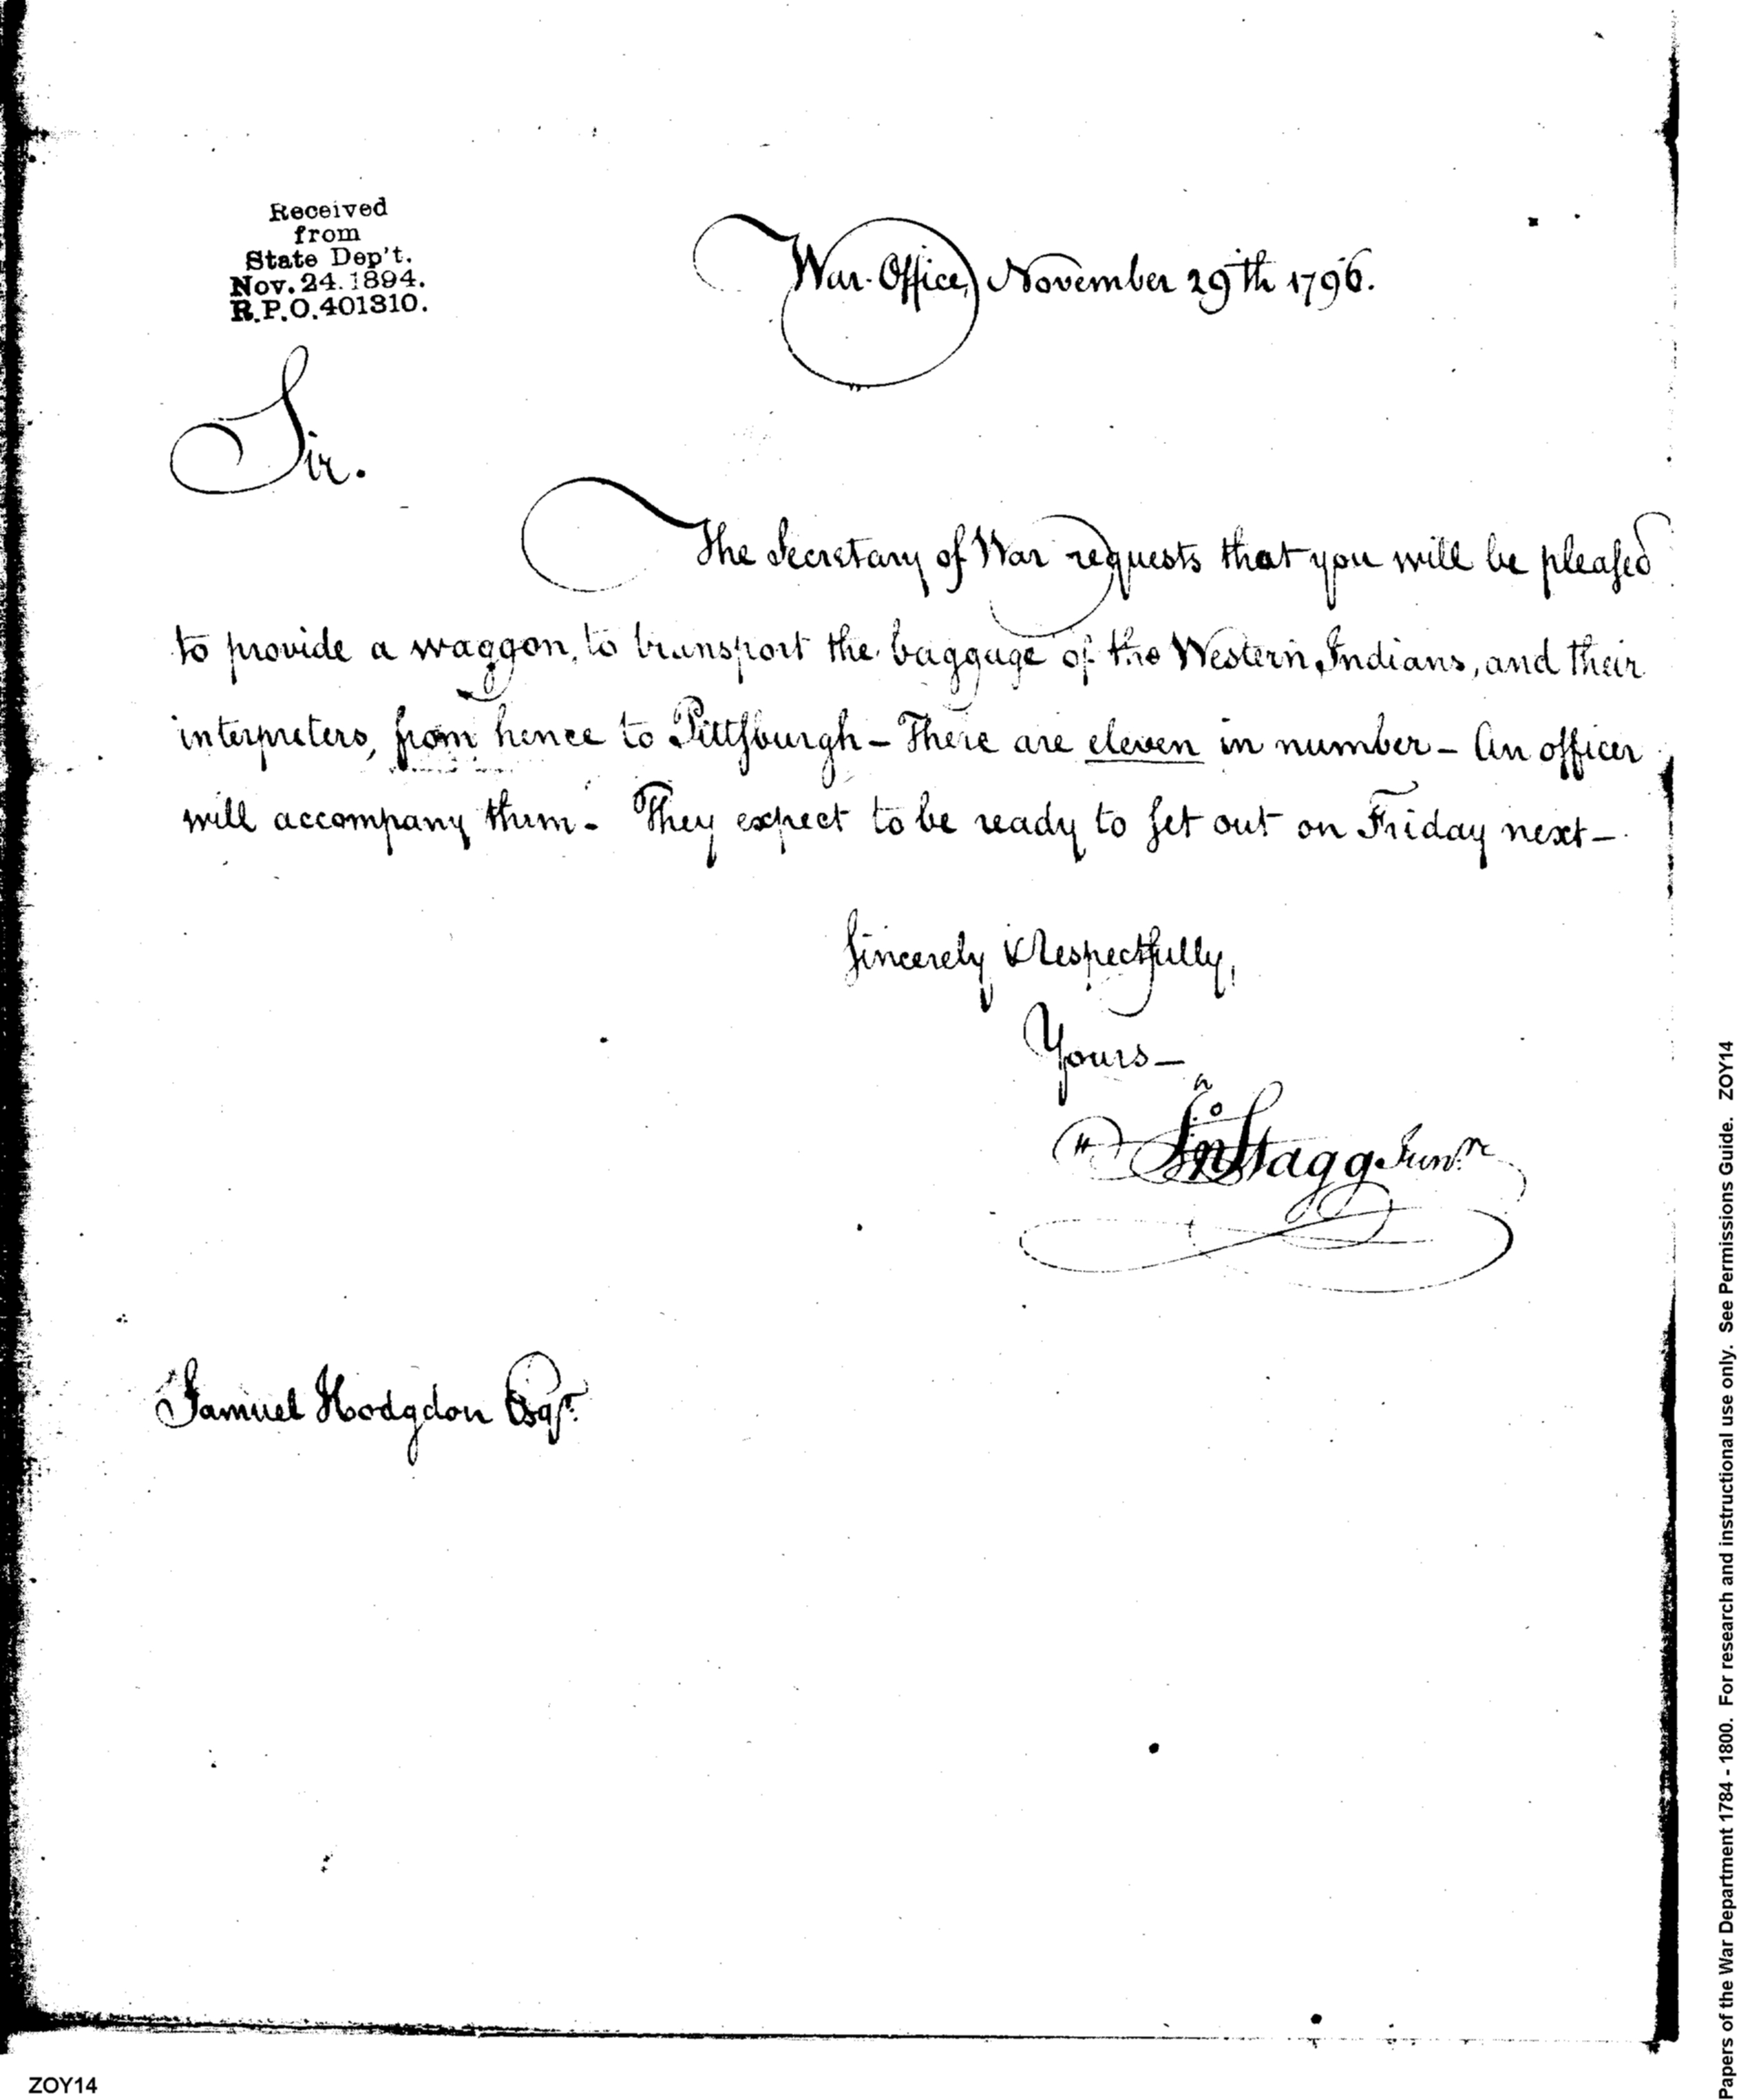 Received
from
State Dep't.
Nov. 24. 1894.
R.P.O. 401310.
War Office, November 29th 1796.
Sir.
The Secretary of War requests that you will be pleased
to provide a waggon, to transport the baggage of the Western Indians, and their
interpreters, from hence to Pittsburgh – There are eleven in number – An officer
will accompany them – They expect to be ready to set out on Friday next –
Sincerely & Respectfully,
Yours –
Jno Stagg Junr.
Samuel Hodgdon Esqr.
ZOY14
Papers of the War Department 1784 - 1800. For research and instructional use only. See Permissions Guide. ZOY14